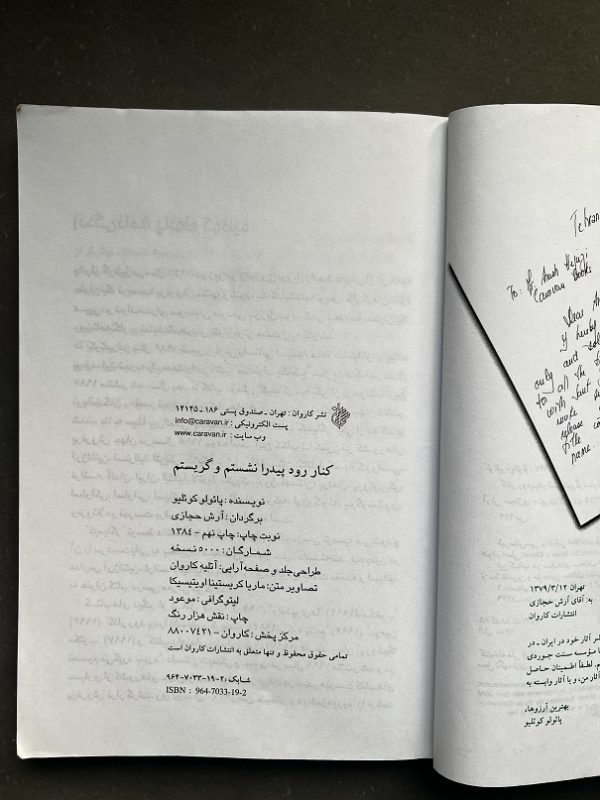 نشر کاروان : تهران - صندوق پستی ۱۸۶ - ۱۴۱۴۵
پست الکترونیکی : info@caravan.ir
وب سایت : www.caravan.ir
کنار رود پیدرا نشستم و گریستم
نویسنده : پائولو کوئلیو
برگردان : آرش حجازی
نوبت چاپ : چاپ نهم - ۱۳۸۴
شمارگان : ۵۰۰۰ نسخه
طراحی جلد و صفحه‌آرایی : آتلیه کاروان
تصاویر متن : ماریا کریستینا اویتیسیکا
لیتوگرافی : موعود
چاپ : نقش هزار رنگ
مرکز پخش : کاروان - ۸۸۰۰۷۴۲۱
تمامی حقوق محفوظ و تنها متعلق به انتشارات کاروان است
شابک : ۲-۱۹-۷۰۳۳-۹۶۴
ISBN : 964-7033-19-2
Tehran
To: Arash Hejazi
Caravan Books
Dear
only and
to all the
with
make
release
of the
name.
تهران ۱۳۷۹/۳/۱۲
به: آقای آرش حجازی
انتشارات کاروان
آثار خود در ایران - در
مؤسسه سنت جوردی
لطفاً اطمینان حاصل
آثار من، و یا آثار وابسته به
بهترین آرزوها،
پائولو کوئلیو